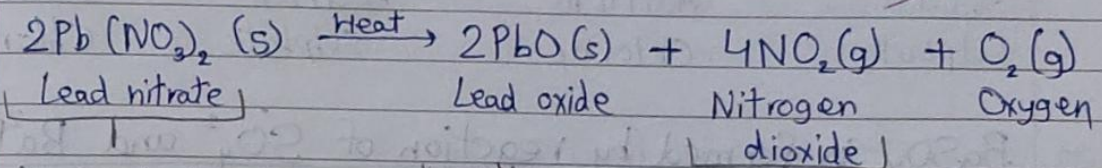 2Pb(NO₃)₂ (s) Heat→ 2PbO(s) + 4NO₂(g) + O₂(g)
Lead nitrate Lead oxide Nitrogen Oxygen
dioxide